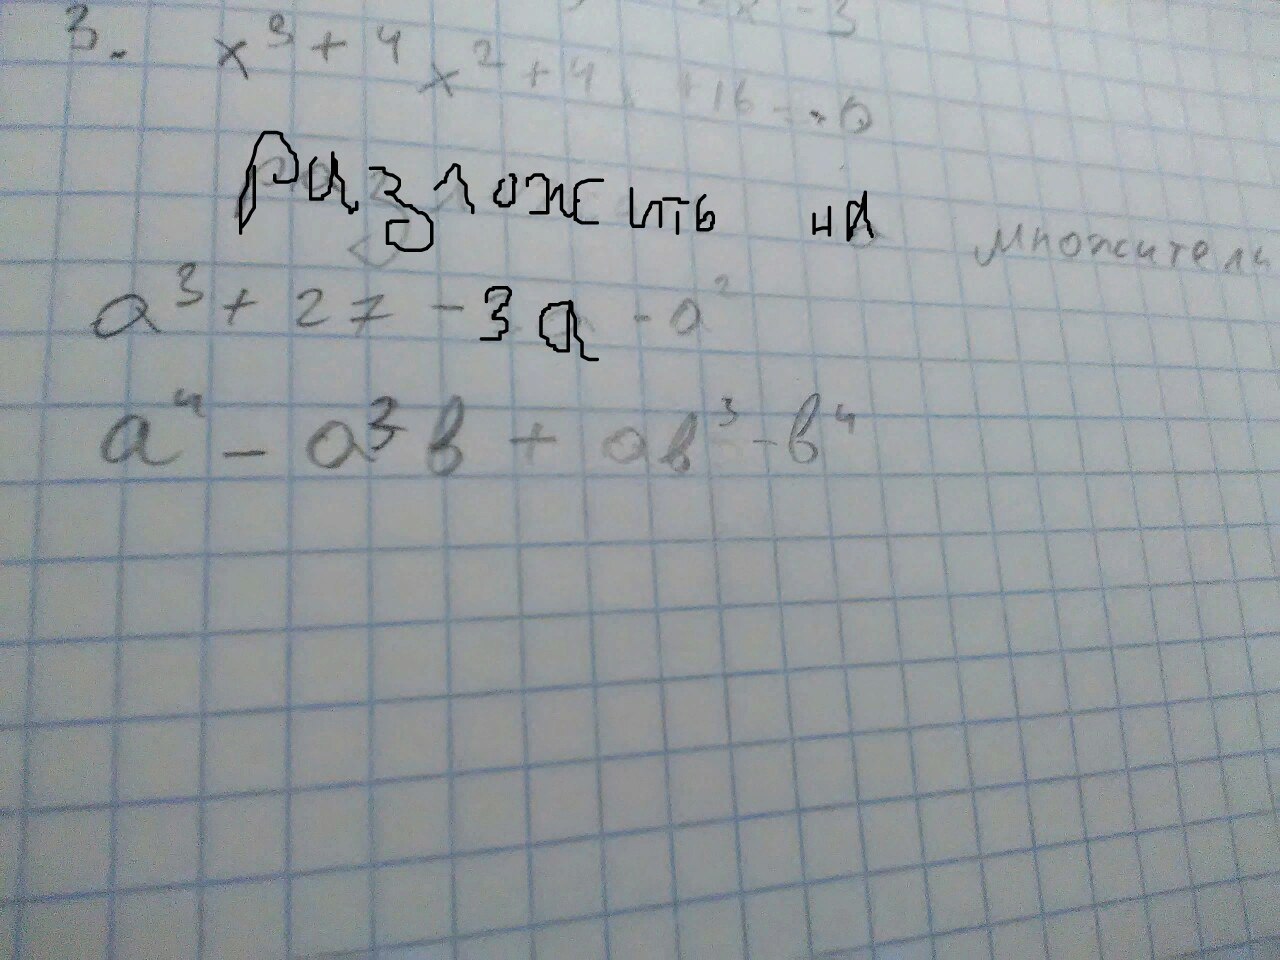 3. x³ + 4x² + 4 + 16 = 0
Разложить на множители
a³ + 27 - 3a - a²
a⁴ - a³b + ab³ - b⁴